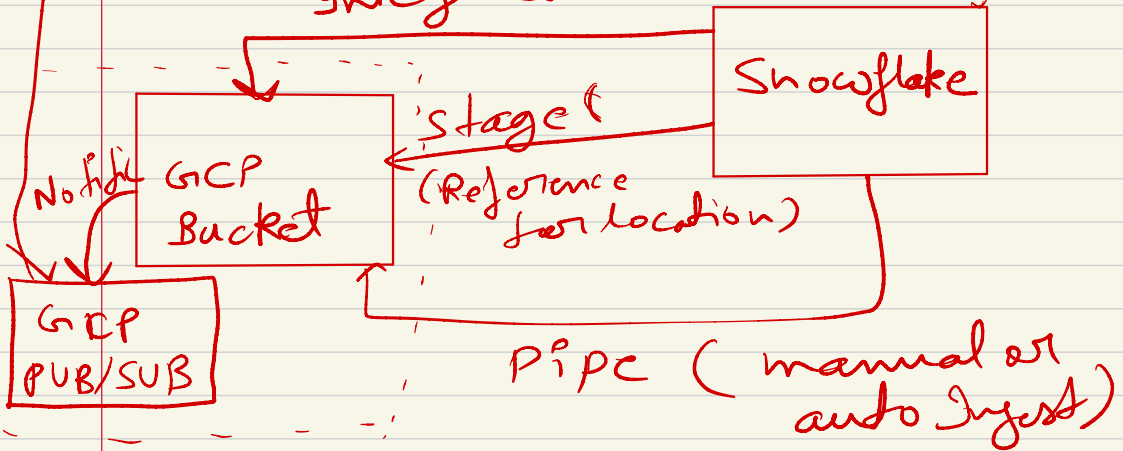 Snowflake
Stage (
(Reference
for location)
Notific
GCP
Bucket
GCP
PUB/SUB
Pipe (manual or
auto Ingest)